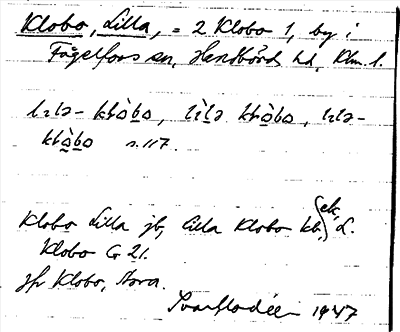 Klobo, Lilla, = 2 Klobo 1, by i
Fågelfors sn, Handbörds hd, Klm. l.
lìlə- klò̱bo, lìlə klò̱bo, lilə-
klò̱bo s. 117.
ek,
Klobo Lilla jb, Lilla Klobo kb, L.
Klobo G 21.
jfr Klobo, Stora.
1947